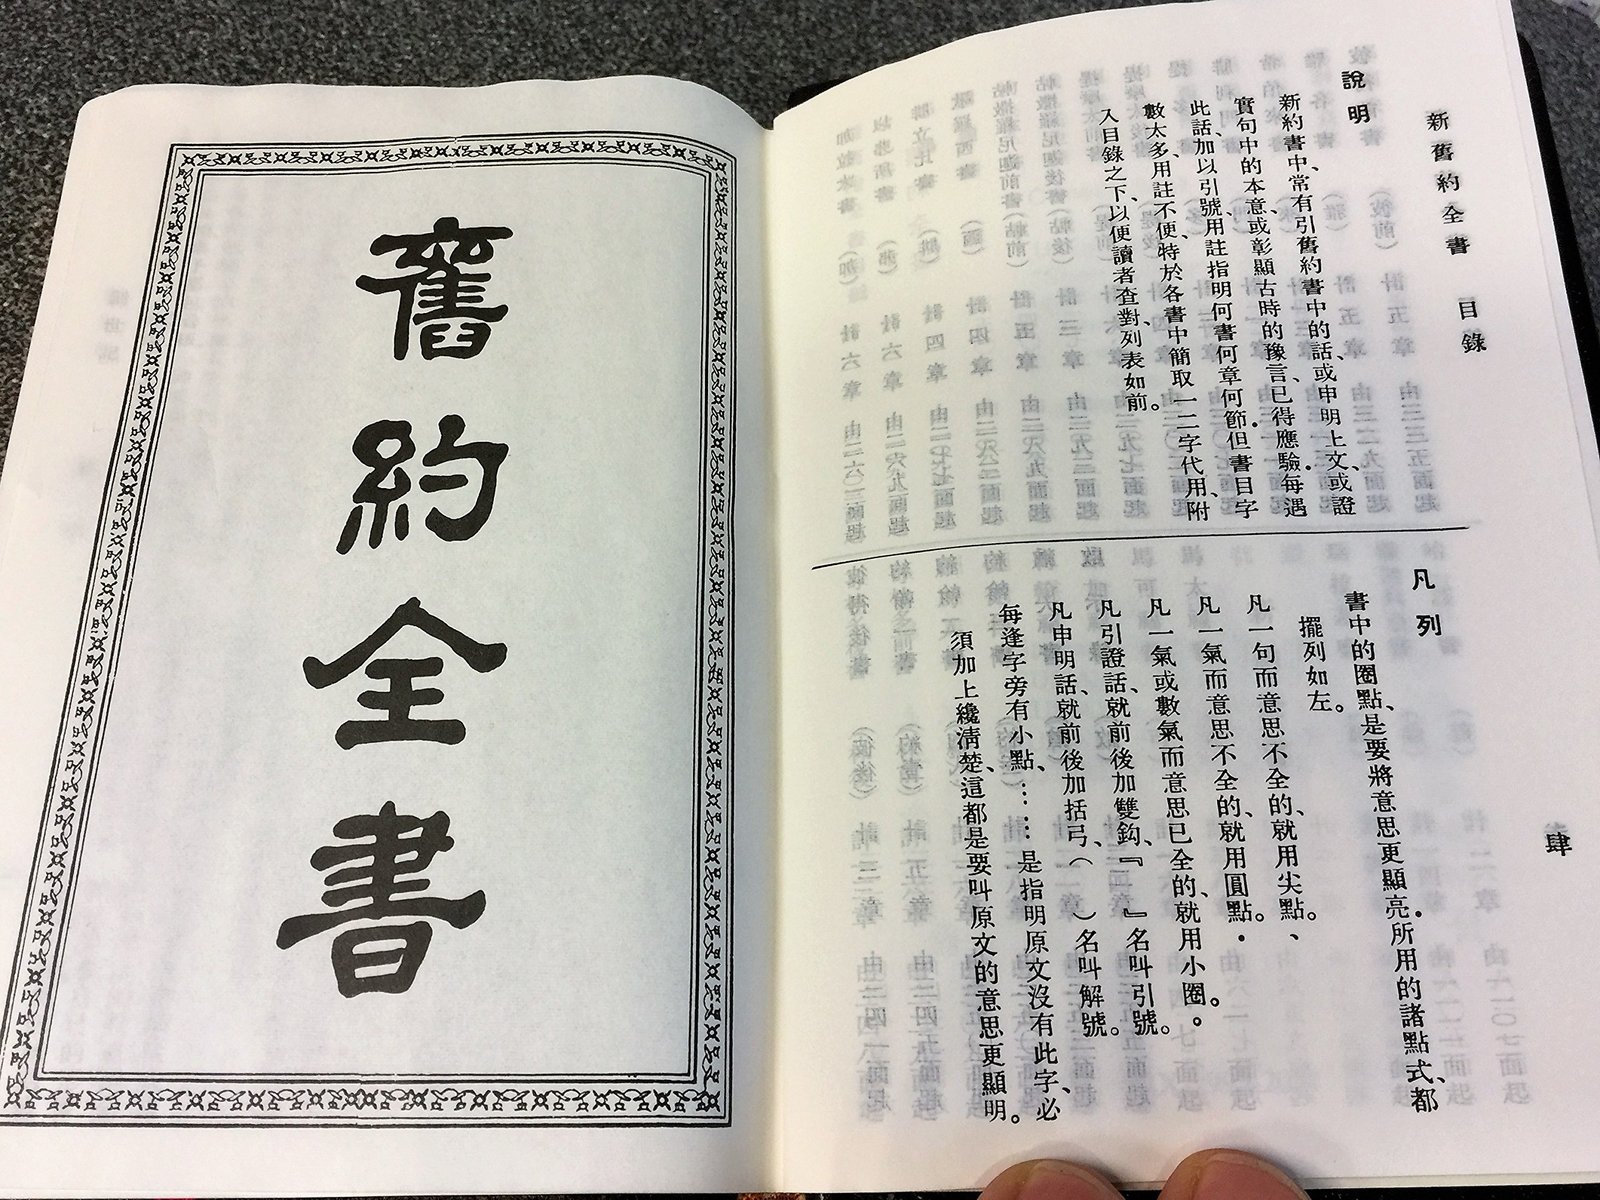 新舊約全書 目錄
肆
說明
新約書中、常有引舊約書中的話、或申明上文、或證
實句中的本意、或彰顯古時的豫言、已得應驗．每遇
此話、加以引號、用註指明何書何章何節．但書目字
數太多、用註不便、特於各書中簡取一二字代用、附
入目錄之下、以便讀者查對、列表如前。
凡列
書中的圈點、是要將意思更顯亮．所用的諸點式、都
擺列如左。
凡一句而意思不全的、就用尖點。、
凡一氣而意思不全的、就用圓點。．
凡一氣或數氣而意思已全的、就用小圈。。
凡引證話、就前後加雙鈎、『 』名叫引號。
凡申明話、就前後加括弓、（ ）名叫解號。
每逢字旁有小點、……是指明原文沒有此字、必
須加上纔淸楚、這都是要叫原文的意思更顯明。
舊約全書